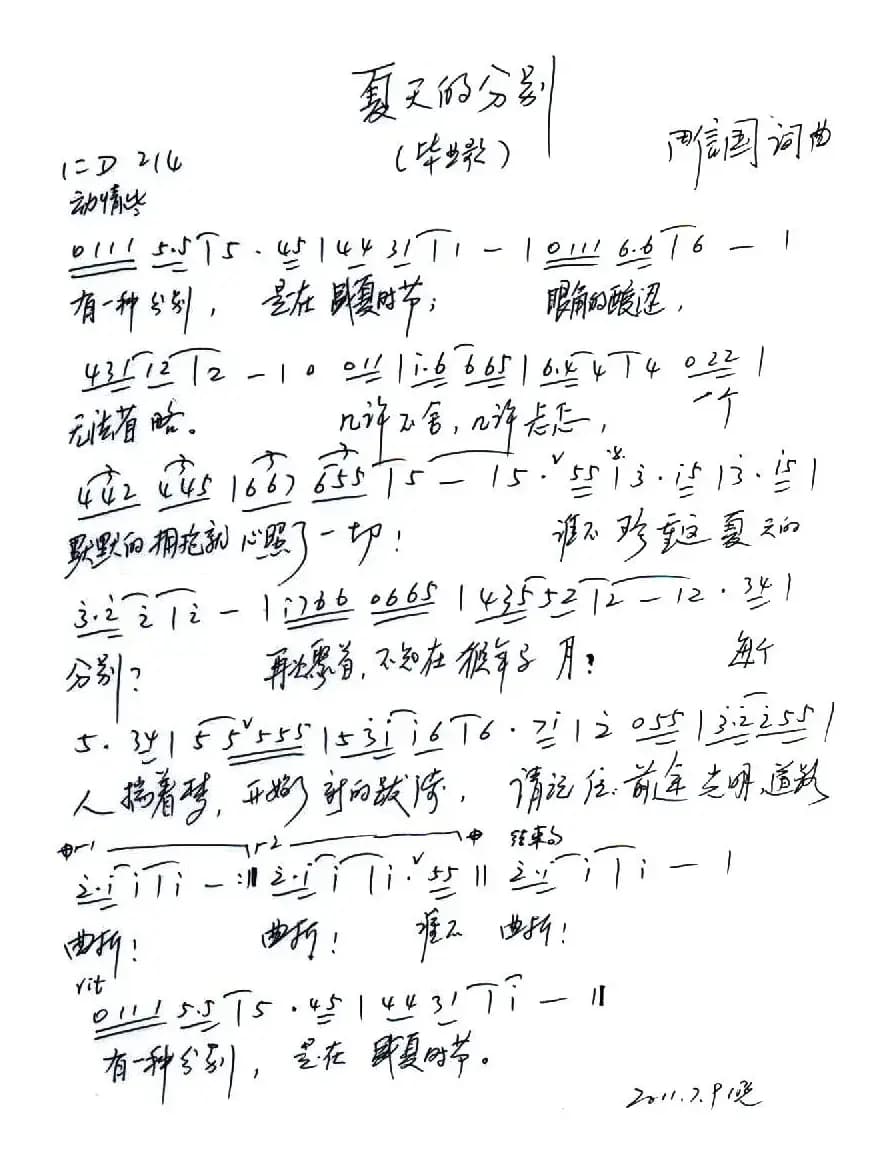 夏天的分别
(毕业歌)
1=D 2/4
信国 词曲
动情些
0111 5.5 | 5 . 45 | 44 31 | 1 - | 0111 6.6 | 6 - |
有一种分别， 是在盛夏时节； 眼角的酸涩，
431 12 | 2 - | 0 011 | i.6 665 | 6.4 4 | 4 022 |
无法省略。 几许不舍，几许忐忑， 一个
442 445 | 667 655 | 5 - | 5 . 55 | 3 . i5 | 3 . i5 |
默默的拥抱就心照了一切！ 谁不珍重这夏天的
3.2 2 | 2 - | i766 0665 | 435 52 | 2 - | 2 . 34 |
分别？ 再次聚首，不知在猴年马月？ 每个
5 . 34 | 5 5 555 | 53i i6 | 6 . 7i | 2 055 | 3.2 255 |
人揣着梦，开始了新的跋涉， 请记住：前途光明、道路
1 2 结束句
2.i i | i - :|| 2.i i | i . 55 || 2.i i | i - |
曲折！ 曲折！ 谁不 曲折！
rit
0111 5.5 | 5 . 45 | 44 31 | i - ||
有一种分别， 是在盛夏时节。
2011.7.9晚